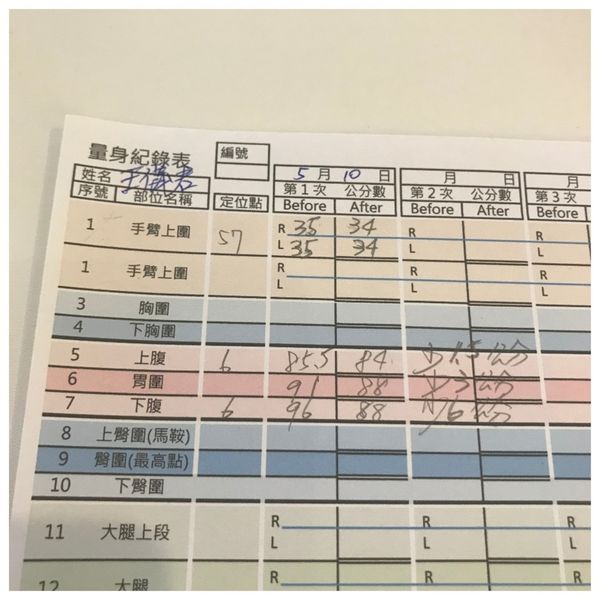 量身紀錄表 編號
姓名 5月10日 月 日 月
序號 部位名稱 定位點 第1次 公分數 第2次 公分數 第3次
Before After Before After Before
1 手臂上圍 57 R 35 34 R R
L 35 34 L L
1 手臂上圍 R R R
L L L
3 胸圍
4 下胸圍
5 上腹 6 85.5 84. 少1.5公分
6 胃圍 91 88 少3公分
7 下腹 6 96 88 少6公分
8 上臀圍(馬鞍)
9 臀圍(最高點)
10 下臀圍
11 大腿上段 R R
L L
12 大腿 R R